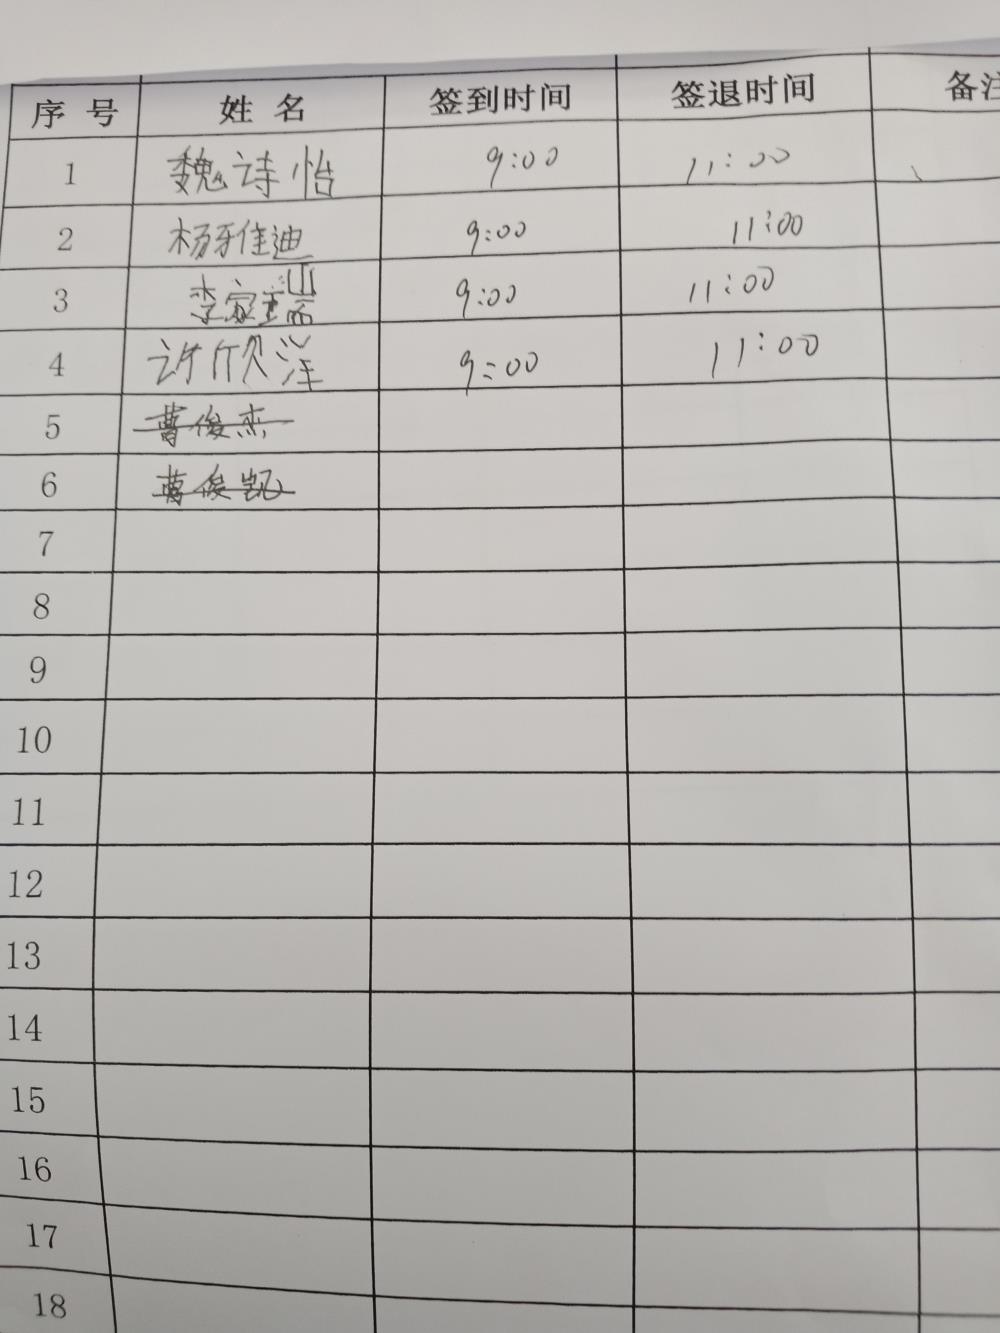 序号 姓名 签到时间 签退时间 备注
1 魏诗怡 9:00 11:00
2 杨雅迪 9:00 11:00
3 李家瑞 9:00 11:00
4 许欣洋 9:00 11:00
5 曹俊杰
6 曹俊凯
7
8
9
10
11
12
13
14
15
16
17
18